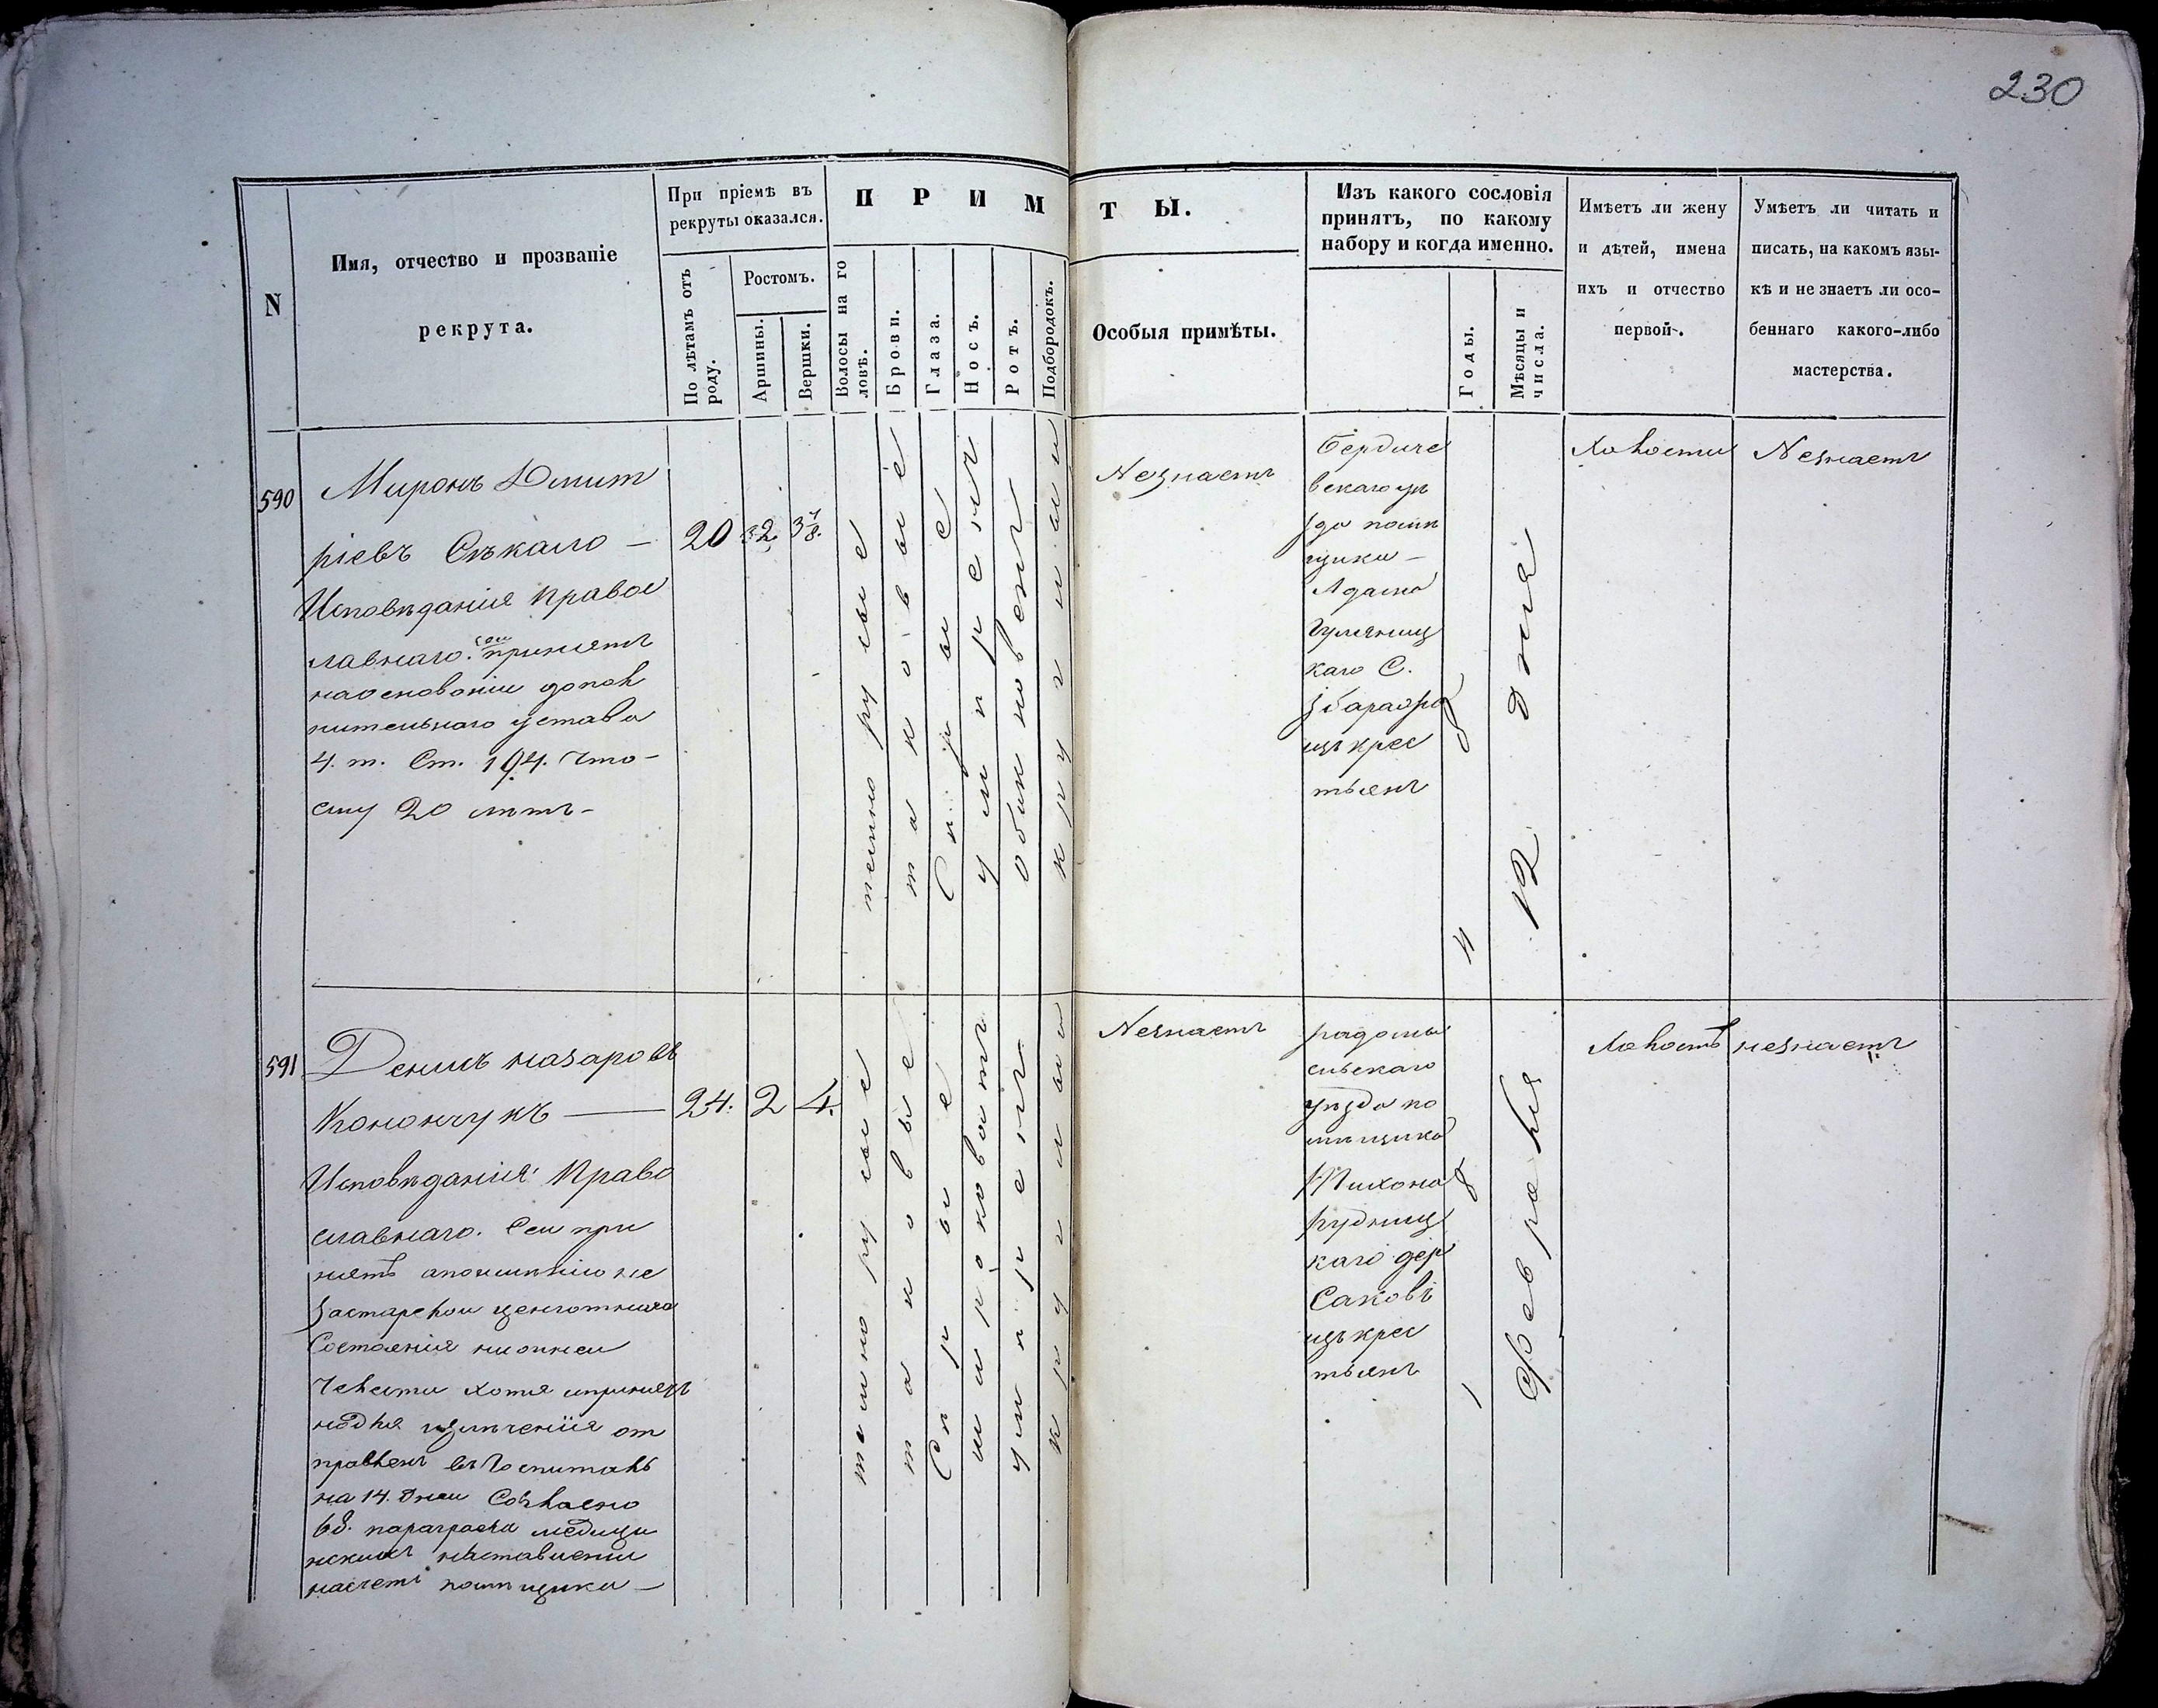 230
N
Имя, отчество и прозваніе
рекрута.
При пріемѣ въ
рекруты оказался.
По лѣтамъ отъ
роду.
Ростомъ.
Аршины.
Вершки.
П Р И М
Т Ы.
Волосы на го
ловѣ.
Брови.
Глаза.
Носъ.
Ротъ.
Подбородокъ.
Особыя примѣты.
Изъ какого сословія
принятъ, по какому
набору и когда именно.
Годы.
Мѣсяцы и
числа.
Имѣетъ ли жену
и дѣтей, имена
ихъ и отчество
первой.
Умѣетъ ли читать и
писать, на какомъ язы-
кѣ и не знаетъ ли осо-
беннаго какого-либо
мастерства.
590
Миронъ Дмит
ріевъ Секало —
Исповѣданія правос
лавнаго. сей принятъ
наоснованіи допол
нительнаго устава
4. т. Ст. 194. что-
ему 20 лѣтъ-
20
2.
3 7/8.
темно русые
таковые
Сѣрые
умѣренъ
Обыкновенъ
круглый
Незнаетъ
Бердиче
вскаго уѣ
зда помѣ
щика —
Адама
каго С.
цъ крес
тьянъ
12 дня
Холостъ
Незнаетъ
591
Денисъ назаровъ
Конончукъ —
Исповѣданія Право
славнаго. Сей при
нятъ
Состоянія
хотя
излѣченія от
правленъ въ Госпиталь
на 14. дней Согласно
68. параграфа медици
нскихъ наставленій
насчетъ помѣщика —
24.
2
4.
темно русые
таковые
Сѣрые
широковатъ
умѣренъ
круглый
Незнаетъ
радомы
сльскаго
уѣзда по
мѣщика
Тихона
рудниц
каго дер
Сакови
цъ крес
тьянъ
1
8
Февраля
Холостъ
незнаетъ